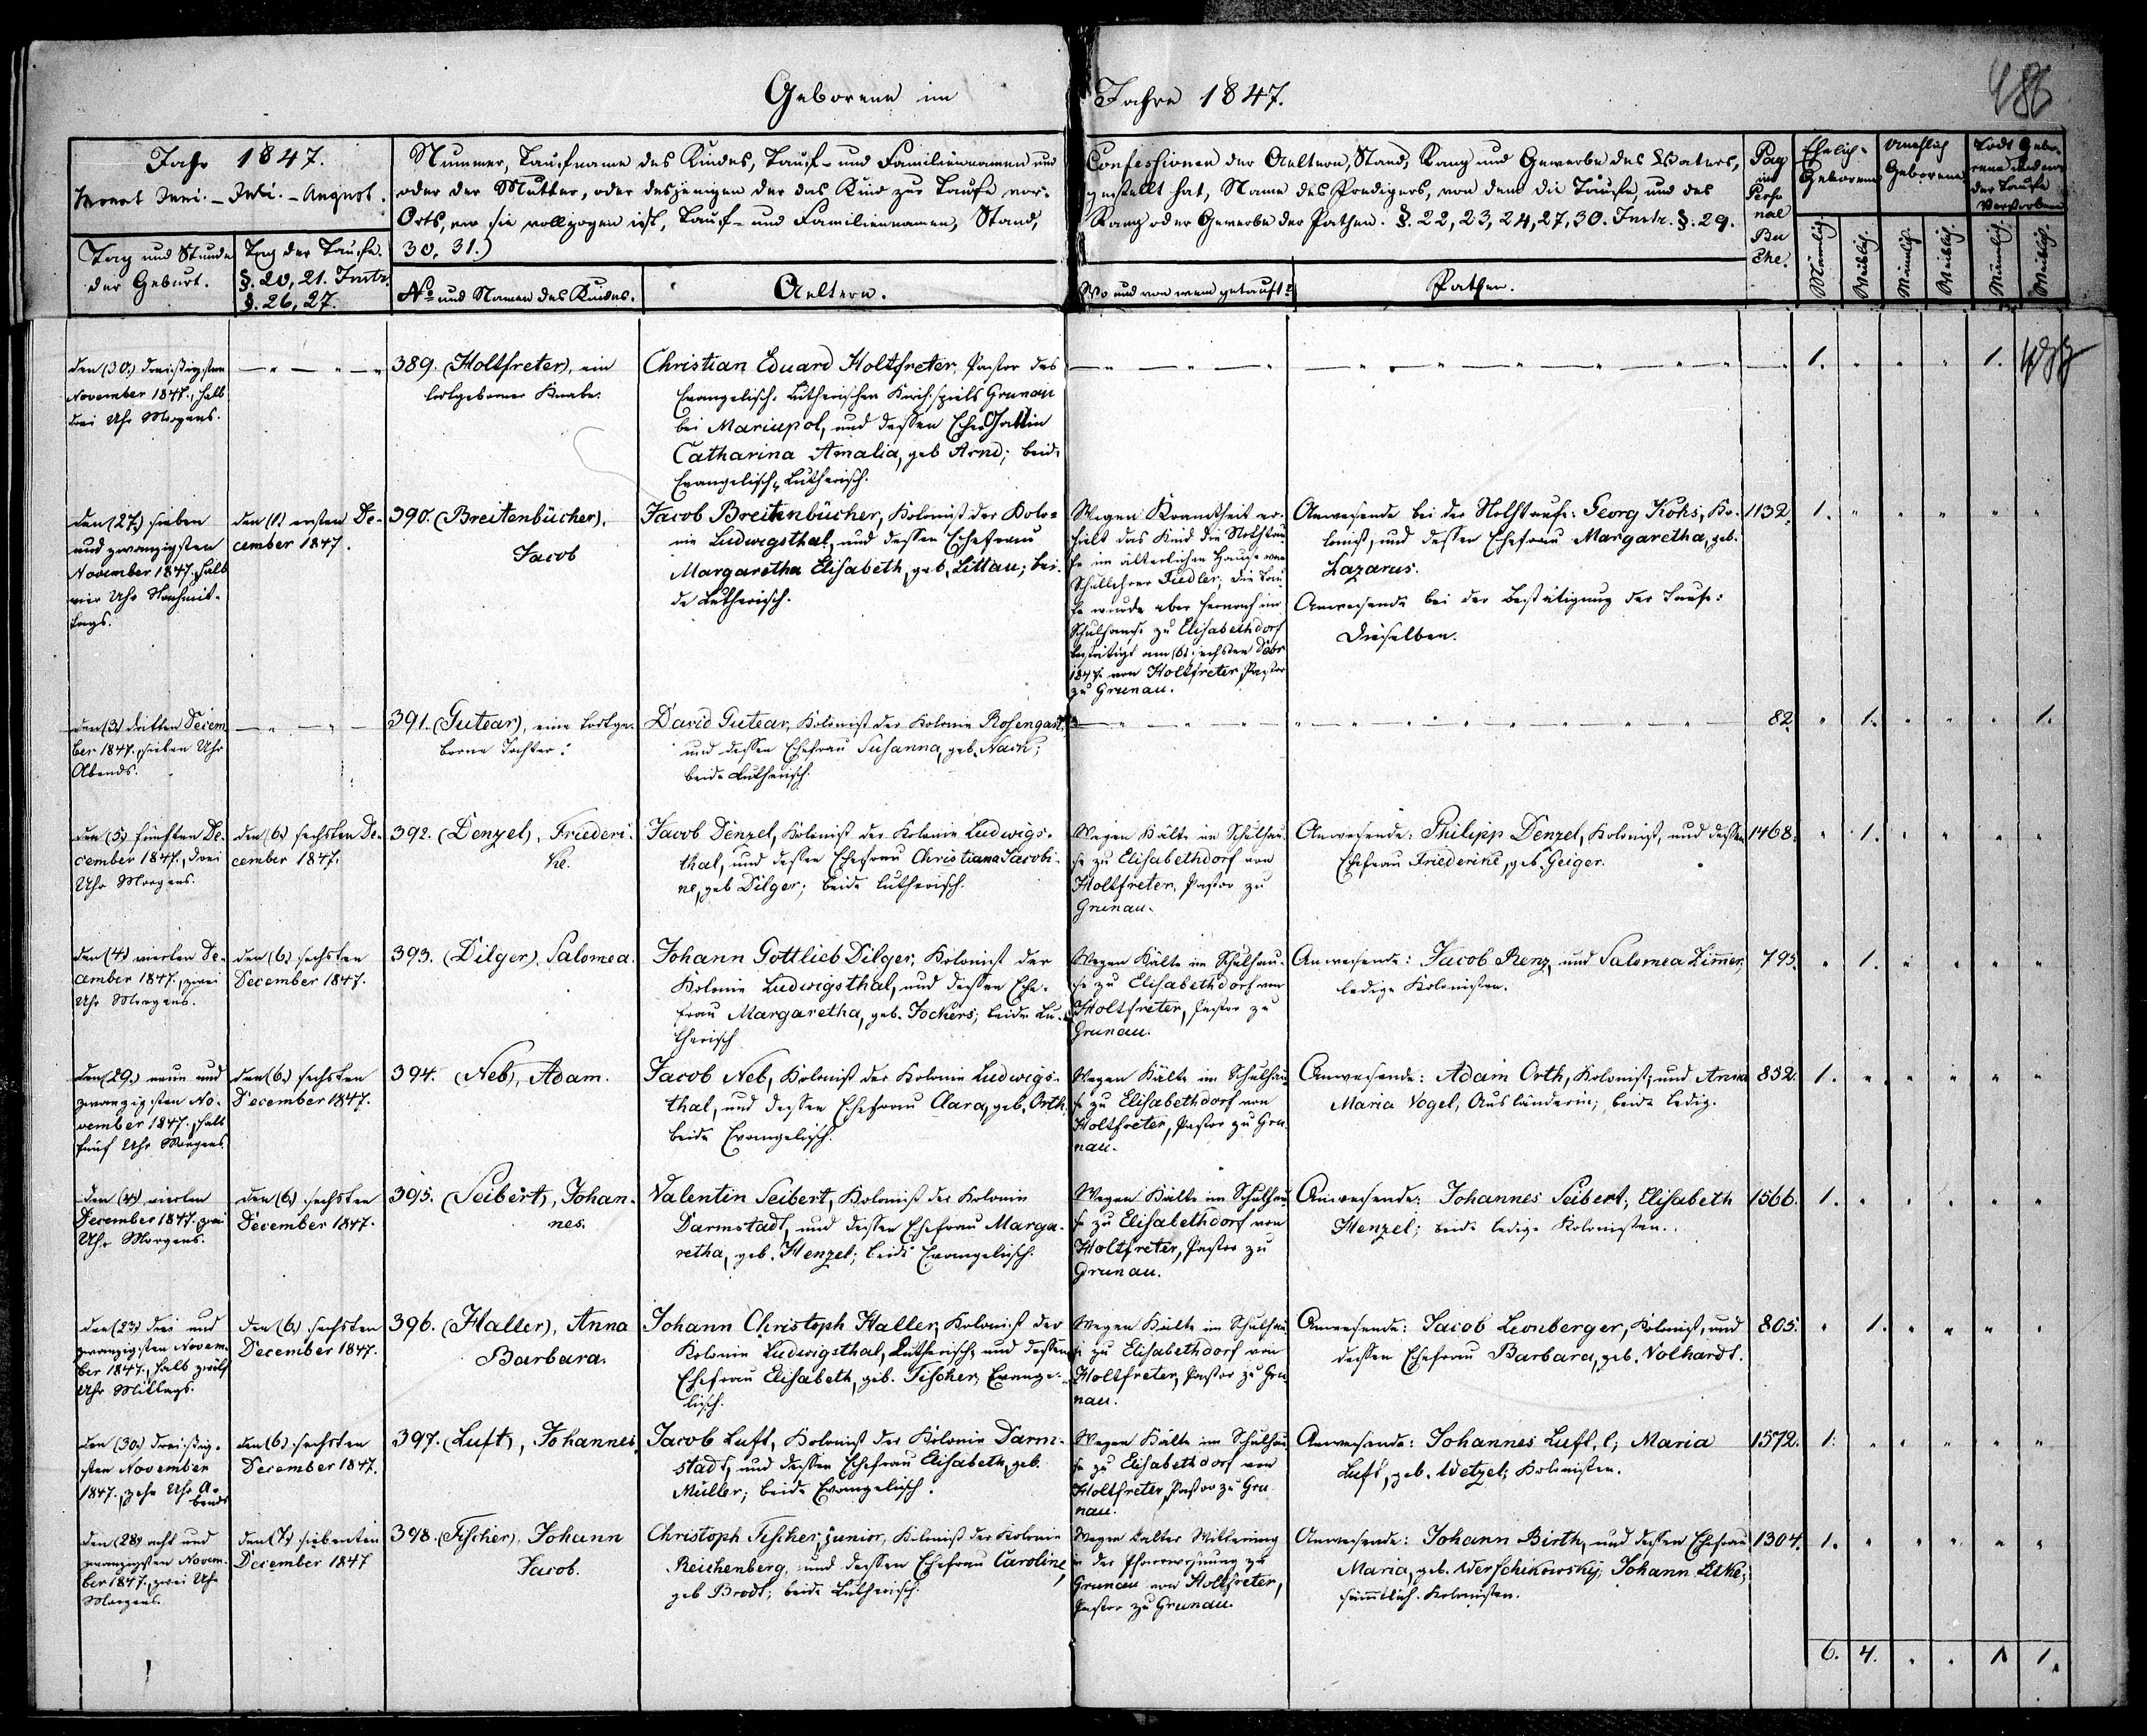 Geborene im Jahre 1847.
486
Jahr 1847.
Monat Juni. – Juli. – August.
Tag und Stunde
der Geburt.
Tag der Taufe.
§. 20, 21. Instr.
§. 26, 27.
Nummer, Taufname des Kindes, Tauf- und Familiennamen und
oder der Mutter, oder desjenigen der das Kind zur Taufe vor-
Orts, wo sie vollzogen ist, Tauf- und Familiennamen, Stand,
30, 31.)
No und Namen des Kindes.
Aeltern.
Confessionen der Aeltern, Stand, Rang und Gewerbe des Vaters,
gestellt hat, Name des Predigers, von dem die Taufe, und des
Rang oder Gewerbe der Pathen. §. 22, 23, 24, 27, 30. Instr. §. 29.
Wo und von wem getauft?
Pathen.
Pag
im
Perso
nal
Bu
che.
Ehelich-
Geborene
Unehlich
Geborene
Todt Gebo-
rene und vor
der Taufe
Verstorbene
Männlich.
Weiblich.
Männlich.
Weiblich.
Männlich.
Weiblich.
den (30.) dreißigsten
November 1847., halb
drei Uhr Morgens.
389. (Holtfreter), ein
todtgeborner Knabe.
Christian Eduard Holtfreter, Pastor des
Evangelisch-Lutherischen Kirchspiels Grunau
bei Mariupol, und dessen EheGattin
Catharina Amalia, geb Arnd; beide
Evangelisch-Lutherisch.
1. 1.
den (27.) sieben
und zwanzigsten
November 1847. halb
vier Uhr Nachmit-
tags.
den (1.) ersten De-
cember 1847.
390. (Breitenbücher),
Jacob
Jacob Breitenbücher, Kolonist der Kolo-
nie Ludwigsthal, und dessen Ehefrau
Margaretha Elisabeth, geb. Littau; bei-
de Lutherisch.
Wegen Krankheit er-
hielt das Kind die Nothtau
fe im älterlichen Hause vom
Schullehrer Fiedler; die Tau
fe wurde aber hernach im
Schulhause zu Elisabethdorf
bestätigt am (6.) sechsten Debr
1847. von Holtfreter, Pastor
zu Grunau.
Anwesende bei der Nothtaufe: Georg Koks, Ko-
lonist, und dessen Ehefrau Margaretha, geb.
Lazarus.
Anwesende bei der Bestätigung der Taufe:
Dieselben.
1132. 1.
den (3.) dritten Decem
ber 1847., sieben Uhr
Abends.
391. (Gutear), eine todtge-
borne Tochter.
David Gutear, Kolonist der Kolonie Rosengart,
und dessen Ehefrau Susanna, geb. Nack;
beide Lutherisch.
82. 1. 1.
den (5.) fünften De-
cember 1847., drei
Uhr Morgens.
den (6.) sechsten De-
cember 1847.
392. (Denzel), Friederi-
ke.
Jacob Denzel, Kolonist der Kolonie Ludwigs-
thal, und dessen Ehefrau Christiana Jacobi-
ne, geb Dilger; beide lutherisch.
Wegen Kälte im Schulhau-
se zu Elisabethdorf von
Holtfreter, Pastor zu
Grunau.
Anwesende: Philipp Denzel, Kolonist, und dessen
Ehefrau Friederike, geb. Geiger.
1468. 1.
den (4.) vierten De-
cember 1847., zwei
Uhr Morgens.
den (6.) sechsten
December 1847.
393. (Dilger) Salomea.
Johann Gottlieb Dilger, Kolonist der
Kolonie Ludwigsthal, und dessen Ehe-
frau Margaretha, geb. Jockers; beide Lu-
therisch
Wegen Kälte im Schulhau-
se zu Elisabethdorf von
Holtfreter, Pastor zu
Grunau.
Anwesende: Jacob Renz, und Salomea Zimer,
ledige Kolonisten.
795. 1.
den (29.) neun und
zwanzigsten No-
vember 1847., halb
fünf Uhr Morgens
den (6.) sechsten
December 1847.
394. (Neb), Adam.
Jacob Neb, Kolonist der Kolonie Ludwigs-
thal, und dessen Ehefrau Clara, geb. Orth,
beide Evangelisch.
Wegen Kälte im Schulhau
se zu Elisabethdorf von
Holtfreter, Pastor zu Gru
nau.
Anwesende: Adam Orth, Kolonist, und Anna
Maria Vogel, Ausländerin; beide ledig.
832. 1.
den (4.) vierten
December 1847. zwei
Uhr Morgens.
den (6.) sechsten
December 1847.
395. (Seibert), Johan-
nes.
Valentin Seibert, Kolonist der Kolonie
Darmstadt, und dessen Ehefrau Marga-
retha, geb. Henzel; beide Evangelisch.
Wegen Kälte im Schulhau
se zu Elisabethdorf von
Holtfreter, Pastor zu
Grunau.
Anwesende: Johannes Seibert; Elisabeth
Henzel; beide ledige Kolonisten.
1566. 1.
den (23.) drei und
zwanzigsten Novem-
ber 1847., halb zwölf
Uhr Mittags.
den (6.) sechsten
December 1847.
396. (Haller), Anna
Barbara.
Johann Christoph Haller, Kolonist der
Kolonie Ludwigsthal, Lutherisch, und dessen
Ehefrau Elisabeth, geb. Fischer, Evange-
lisch.
Wegen Kälte im Schulhau
se zu Elisabethdorf von
Holtfreter, Pastor zu Gru
nau.
Anwesende: Jacob Leonberger, Kolonist, und
dessen Ehefrau Barbara, geb. Volhardt.
805. 1.
den (30.) dreißig-
sten November
1847., zehn Uhr A-
bends
den (6.) sechsten
December 1847.
397. (Luft), Johannes.
Jacob Luft, Kolonist der Kolonie Darm-
stadt, und dessen Ehefrau Elisabeth, geb.
Müller; beide Evangelisch.
Wegen Kälte im Schulhau
se zu Elisabethdorf von
Holtfreter, Pastor zu Gru
nau.
Anwesende: Johannes Luft, l; Maria
Luft, geb. Wetzel; Kolonisten.
1572. 1.
den (28.) acht und
zwanzigsten Novem-
ber 1847., zwei Uhr
Morgens.
den (7.) siebenten
December 1847
398. (Fischer), Johann
Jacob.
Christoph Fischer, junior, Kolonist der Kolonie
Reichenberg, und dessen Ehefrau Caroline,
geb Brodt; beide Lutherisch.
Wegen kalter Witterung
in der Pfarrwohnung zu
Grunau von Holtfreter,
Pastor zu Grunau.
Anwesende: Johann Birth, und dessen Ehefrau
Maria, geb. Werschikowsky; Johann Litke;
sämtlich Kolonisten.
1304. 1.
6. 4. 1. 1.